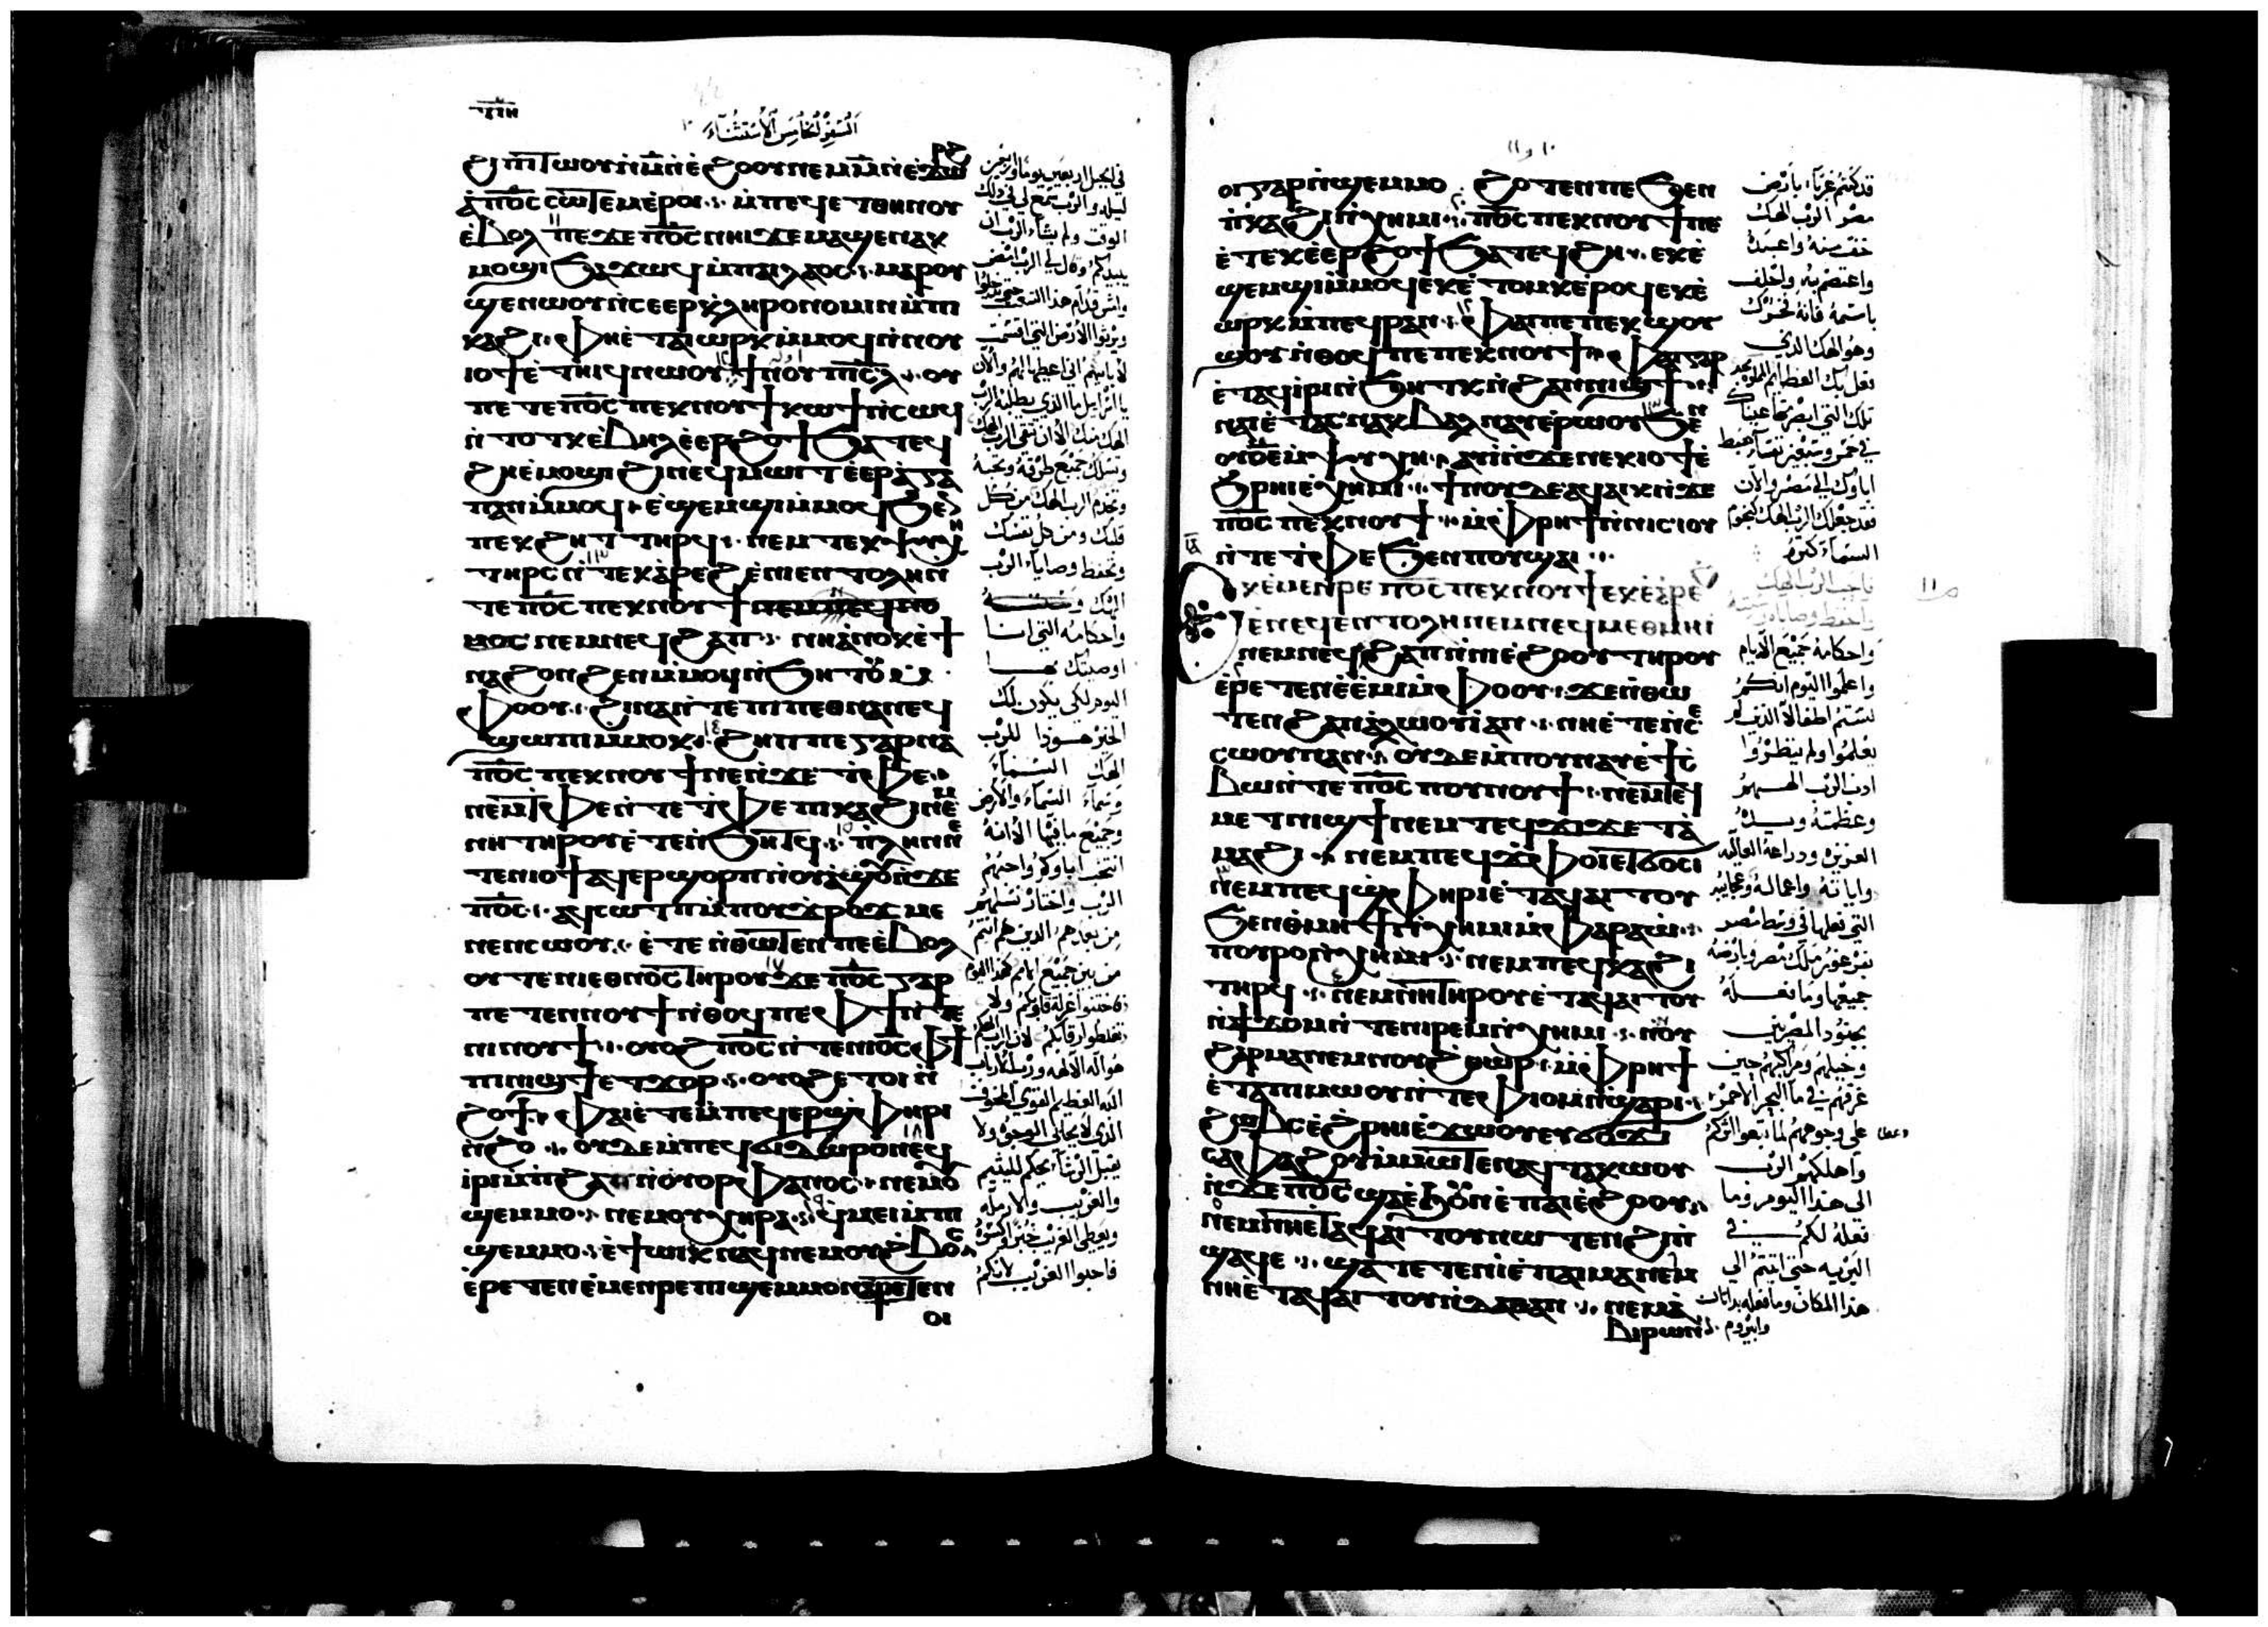 ⲩⲡⲏ
السفر الخامس الاستثناء
ϩⲓⲡⲓⲧⲱⲟⲩ ⲛ̀ⲙ̄ ⲛ̀ⲉ̀ϩⲟⲟⲩ ⲛⲉⲙ ⲙ̄ ⲛ̀ⲉ̀ϫⲱⲣϩ
ⲁ̀ ⲡⲟ̅ⲥ̅ ⲥⲱⲧⲉⲙ ⲉ̀ⲣⲟⲓ ⲙ̀ⲡⲉϥⲉⲧⲑⲏⲛⲟⲩ
ⲉ̀ⲃⲟⲗ ⲡⲉϫⲉ ⲡⲟ̅ⲥ̅ ⲛⲏⲓ ϫⲉ ⲙⲁϣⲉⲛⲁⲕ
ⲙⲟϣⲓ ϧⲁϫⲱϥ ⲙ̀ⲡⲁⲓⲗⲁⲟⲥ ⲙⲁⲣⲟⲩ
ϣⲉⲛⲱⲟⲩ ⲛ̀ⲥⲉⲉⲣⲕ̀ⲗⲏⲣⲟⲛⲟⲙⲓⲛ ⲙ̀ⲡⲓ
ⲕⲁϩⲓ ⲫⲏⲉ̀ⲧⲁⲓⲱⲣⲕ ⲙ̀ⲙⲟϥ ⲛ̀ⲛⲟⲩ
ⲓⲟϯ ⲉ̀ⲧⲏⲓϥ ⲛⲱⲟⲩ ϯⲛⲟⲩ ⲡⲓⲥ̅ⲗ̅ ⲟⲩ
ⲡⲉⲧⲉ ⲡⲟ̅ⲥ̅ ⲡⲉⲕⲛⲟⲩϯ ⲕⲱϯ ⲛ̀ⲥⲱϥ
ⲛ̀ⲧⲟⲧⲕ ⲉ̀ⲃⲏⲗ ⲉ̀ⲉⲣϩⲟϯ ϧⲁⲧⲉϥ
ϩⲏ ⲉ̀ⲙⲟϣⲓ ϩⲓ ⲛⲉϥⲙⲱⲓⲧ ⲉ̀ⲉⲣⲁ̀ⲅⲁ
ⲡⲁⲛ ⲙ̀ⲙⲟϥ ⲉ̀ϣⲉⲙϣⲓ ⲙ̀ⲙⲟϥ ϧⲉⲛ
ⲡⲉⲕϩⲏⲧ ⲧⲏⲣϥ ⲛⲉⲙ ⲧⲉⲕⲯⲩⲭⲏ
ⲧⲏⲣⲥ ⲛ̀ⲧⲉⲕⲁ̀ⲣⲉϩ ⲉ̀ⲛⲓⲉⲛⲧⲟⲗⲏ ⲛ̀
ⲧⲉ ⲡⲟ̅ⲥ̅ ⲡⲉⲕⲛⲟⲩϯ ⲛⲉⲙ ⲛⲉϥⲛⲟ
ⲙⲟⲥ ⲛⲉⲙ ⲛⲉϥϩⲁⲡ ⲛⲏ ⲁ̀ⲛⲟⲕ ⲉ̀ϯ
ⲛⲁϩⲟⲛϩⲉⲛ ⲙ̀ⲙⲱⲟⲩ ⲛ̀ϧⲏⲧⲟⲩ
ⲫⲟⲟⲩ ϩⲓⲛⲁ ⲛ̀ⲧⲉ ⲡⲓⲡⲉⲑⲛⲁⲛⲉϥ
ϣⲱⲡⲓ ⲙ̀ⲙⲟⲕ ϩⲏⲡⲡⲉ ⲅⲁⲣ ⲛⲁ
ⲡⲟ̅ⲥ̅ ⲡⲉⲕⲛⲟⲩϯ ⲛⲉ ⲛ̀ϫⲉ ⲧ̀ⲫⲉ
ⲛⲉⲙ ⲧ̀ⲫⲉ ⲛ̀ⲧⲉ ⲧ̀ⲫⲉ ⲡⲓⲕⲁϩⲓ ⲛⲉⲙ
ⲛⲏ ⲧⲏⲣⲟⲩ ⲉ̀ⲧⲉ ⲛ̀ϧⲏⲧϥ ⲡ̀ⲗⲏⲛ ⲛⲉ
ⲧⲉⲛⲓⲟϯ ⲁϥⲉⲣϣⲟⲣⲡ ⲛ̀ⲟⲩⲁ̀ϣⲟⲩ ⲛ̀ϫⲉ
ⲡⲟ̅ⲥ̅ ⲁϥⲥⲱⲧⲡ ⲙ̀ⲡⲟⲩϫ̀ⲣⲟϫ ⲙⲉ
ⲛⲉⲛⲥⲱⲟⲩ ⲉ̀ⲧⲉ ⲛ̀ⲑⲱⲧⲉⲛ ⲡⲉ ⲉ̀ⲃⲟⲗ
ⲟⲩⲧⲉ ⲛⲓⲉⲑⲛⲟⲥ ⲧⲏⲣⲟⲩ ϫⲉ ⲡⲟ̅ⲥ̅ ⲅⲁⲣ
ⲡⲉⲧⲉⲛⲛⲟⲩϯ ⲛ̀ⲑⲟϥ ⲡⲉ ⲫϯ ⲛ̀ⲧⲉ
ⲛⲓⲛⲟⲩϯ ⲟⲩⲟϩ ⲡⲟ̅ⲥ̅ ⲛ̀ⲧⲉ ⲛⲓⲟ̅ⲥ̅ ⲫϯ
ⲡⲓⲛⲓϣϯ ⲉⲧϫⲟⲣ ⲟⲩⲟϩ ⲉⲧⲟⲓ ⲛ̀
ϩⲟϯ ⲫⲁⲓ ⲉ̀ⲧⲉⲙ̀ⲡⲉϥⲉⲣϣ̀ⲫⲏⲣⲓ
ⲛ̀ϩⲟ ⲟⲩⲇⲉ ⲙ̀ⲡⲉϥϭⲓⲇⲱⲣⲟⲛ ⲉϥ
ⲓⲣⲓ ⲙ̀ⲡϩⲁⲡ ⲛ̀ⲟⲩⲟⲣⲫⲁⲛⲟⲥ ⲛⲉⲙ ⲟⲩ
ϣⲉⲙⲙⲟ ⲛⲉⲙ ⲟⲩⲭⲏⲣⲁ ϥⲙⲉⲓ ⲙ̀ⲡⲓ
ϣⲉⲙⲙⲟ ⲉ̀ϯⲱⲓⲕ ⲛⲁϥ ⲛⲉⲙ ⲟⲩϩⲃⲟⲥ
ⲉ̀ⲣⲉⲧⲉⲛⲉ̀ⲙⲉⲛⲣⲉ ⲡⲓϣⲉⲙⲙⲟ ⲛⲁⲣⲉⲧⲉⲛ
ⲟⲓ
في الجبل اربعين يوما واربعين
ليلة والرب سمع لي في ذلك
الوقت ولم يشاء الرب ان
يبيدكم وقال لي الرب امض
وامش قدام هذا الشعب حتى يدخلوا
ويرثوا الارض التي اقسمت
لابايهم اني اعطيها لهم والان
يا اسرايل ما الذي يطلبه الرب
الهك منك الا ان تتقي الرب الهك
وتسلك جميع طرقه وتحبه
وتخدم الرب الهك من كل
قلبك ومن كل نفسك
وتحفظ وصايا الرب
الهك
واحكامه التي انا
اوصيتك بها
اليوم لكي يكون لك
الخير هوذا للرب
الهك السماء
وسماء السماء والارض
وجميع ما فيها الا انه
انتخب اباوكم واحبهم
الرب واختار نسلهم
من بعدهم الذين هم انتم
من بين جميع الامم كهذا اليوم
هو اله الالهه ورب الارباب
الله العظيم القوي المخوف
الذي لا يحابي الوجوه ولا
يقبل الرشا يحكم لليتيم
والغريب والارمله
ويعطى الغريب خبزا وكسوه
فاحبوا الغريب لانكم
١٠ و ١١
ⲟⲓ ⲅⲁⲣ ⲛ̀ϣⲉⲙⲙⲟ ϩⲱⲧⲉⲛ ⲡⲉ ϧⲉⲛ
ⲡ̀ⲕⲁϩⲓ ⲛ̀ⲭⲏⲙⲓ ⲡⲟ̅ⲥ̅ ⲡⲉⲕⲛⲟⲩϯ ⲡⲉ
ⲉ̀ⲧⲉⲕⲉ̀ⲉⲣϩⲟϯ ϧⲁⲧⲉϥϩⲏ ⲉⲕⲉ̀
ϣⲉⲙϣⲓ ⲙ̀ⲙⲟϥ ⲉⲕⲉ̀ⲧⲟⲙⲕ ⲉ̀ⲣⲟϥ ⲉⲕⲉ̀
ⲱⲣⲕ ⲙ̀ⲡⲉϥⲣⲁⲛ ⲫⲁⲓ ⲡⲉ ⲡⲉⲕϣⲟⲩ
ϣⲟⲩ ⲛ̀ⲑⲟϥ ⲡⲉ ⲡⲉⲕⲛⲟⲩϯ ⲫⲁⲓ ⲅⲁⲣ
ⲉ̀ⲧⲁϥⲓⲣⲓ ⲛ̀ϧⲏⲧⲕ ⲛ̀ϩⲁⲛⲛⲓϣϯ
ⲛⲁⲓ ⲉ̀ⲧⲁ ⲛⲉⲕⲃⲁⲗ ⲛⲁⲩ ⲉ̀ⲣⲱⲟⲩ ϧⲉⲛ
ⲟ̅ⲉ̅ ⲙ̀ⲯⲩⲭⲏ ⲁⲩⲓ̀ ⲛ̀ϫⲉ ⲛⲉⲕⲓⲟϯ ⲉ̀
ϧⲣⲏⲓ ⲉ̀ⲭⲏⲙⲓ ϯⲛⲟⲩ ⲇⲉ ⲁϥⲁⲓⲕ ⲛ̀ϫⲉ
ⲡⲟ̅ⲥ̅ ⲡⲉⲕⲛⲟⲩϯ ⲙ̀ⲫⲣⲏϯ ⲛ̀ⲛⲓⲥⲓⲟⲩ
ⲛ̀ⲧⲉ ⲧ̀ⲫⲉ ϧⲉⲛ ⲡⲟⲩⲁϣⲁⲓ
ⲓ̅ⲁ̅
ⲉⲕⲉ̀ⲙⲉⲛⲣⲉ ⲡⲟ̅ⲥ̅ ⲡⲉⲕⲛⲟⲩϯ ⲉⲕⲉ̀ⲁ̀ⲣⲉϩ
ⲉ̀ⲛⲉϥⲉⲛⲧⲟⲗⲏ ⲛⲉⲙ ⲛⲉϥⲙⲉⲑⲙⲏⲓ
ⲛⲉⲙ ⲛⲉϥϩⲁⲡ ⲛ̀ⲛⲓⲉ̀ϩⲟⲟⲩ ⲧⲏⲣⲟⲩ
ⲉ̀ⲣⲉⲧⲉⲛⲉ̀ⲉ̀ⲙⲓ ⲙ̀ⲫⲟⲟⲩ ϫⲉ ⲛ̀ⲑⲱ
ⲧⲉⲛ ϩⲁⲛⲁ̀ⲗⲱⲟⲩⲓ̀ ⲁⲛ ⲛⲏ ⲉ̀ⲧⲉⲛⲥⲉ
ⲥⲱⲟⲩⲛ ⲁⲛ ⲟⲩⲇⲉ ⲙ̀ⲡⲟⲩⲛⲁⲩ ⲉ̀ϯⲥ
ⲃⲱ ⲛ̀ⲧⲉ ⲡⲟ̅ⲥ̅ ⲡⲟⲩⲛⲟⲩϯ ⲛⲉⲙ ⲧⲉϥ
ⲙⲉⲧⲛⲓϣϯ ⲛⲉⲙ ⲧⲉϥϫⲓϫ ⲉⲧⲁ̀
ⲙⲁϩⲓ ⲛⲉⲙ ⲡⲉϥϫ̀ⲫⲟⲓ ⲉⲧϭⲟⲥⲓ
ⲛⲉⲙ ⲛⲉϥϣ̀ⲫⲏⲣⲓ ⲉ̀ⲧⲁϥⲁⲓⲧⲟⲩ
ϧⲉⲛ ⲑ̀ⲙⲏϯ ⲛ̀ⲭⲏⲙⲓ ⲙ̀ⲫⲁⲣⲁⲱ̀
ⲡⲟⲩⲣⲟ ⲛ̀ⲭⲏⲙⲓ ⲛⲉⲙ ⲡⲉϥⲕⲁϩⲓ
ⲧⲏⲣϥ ⲛⲉⲙ ⲛⲏ ⲧⲏⲣⲟⲩ ⲉ̀ⲧⲁϥⲁⲓⲧⲟⲩ
ⲛ̀ϯϫⲟⲙ ⲛ̀ⲧⲉ ⲛⲓⲣⲉⲙⲛ̀ⲭⲏⲙⲓ ⲛⲟⲩ
ϩⲁⲣⲙⲁ ⲛⲉⲙ ⲛⲟⲩϩⲑⲱⲣ ⲙ̀ⲫⲣⲏϯ
ⲉ̀ⲧⲁ ⲡⲓⲙⲱⲟⲩ ⲛ̀ⲧⲉ ⲫⲓⲟⲙ ⲛ̀ϣⲁⲣⲓ
ϩⲱⲃⲥ ⲉ̀ϩⲣⲏⲓ ⲉ̀ϫⲱⲟⲩ ⲉⲩϭⲟϫⲓ
ⲥⲁⲫⲁϩⲟⲩ ⲙ̀ⲙⲱⲧⲉⲛ ⲁϥⲧⲁⲕⲱⲟⲩ
ⲛ̀ϫⲉ ⲡⲟ̅ⲥ̅ ϣⲁ ⲉ̀ϧⲟⲩⲛ ⲉ̀ⲡⲁⲓⲉ̀ϩⲟⲟⲩ
ⲛⲉⲙ ⲛⲏ ⲉ̀ⲧⲁϥⲁⲓⲧⲟⲩ ⲛⲱⲧⲉⲛ ϩⲓ ⲡ̀
ϣⲁϥⲉ ϣⲁⲧⲉⲧⲉⲛⲓ̀ ⲉ̀ⲡⲁⲓⲙⲁ ⲛⲉⲙ
ⲛⲏ ⲉ̀ⲧⲁϥⲁⲓⲧⲟⲩ ⲛ̀ⲇⲁⲑⲁⲛ ⲛⲉⲙ ⲁ̀
ⲃⲓⲣⲱⲛ
قد كنتم غرباء بارض
مصر الرب الهك
خف منه واعبده
واعتصم به واحلف
باسمه فانه فخرك
وهو الهك الذي
فعل بك العظايم
تلك التي ابصرتها عيناك
في خمس وسبعين نفسا هبط
اباوك الي مصر والان
فقد جعلك الرب الهك كنجوم
السماء كثره
فاحب الرب الهك
واحفظ وصاياه
واحكامه جميع الايام
واعلموا اليوم انكم
لستم اطفالا الذين لم
يعلموا ولم ينظروا
ادب الرب الههم
وعظمته ويده
العزيزه ودراعه العاليه
واياته واعماله وعجايبه
التي فعلها في وسط مصر
بفرعون ملك مصر وبارضه
جميعها وما فعله
بجنود المصريين
وخيلهم ومراكبهم حين
غرقهم في ما البحر الاحمر
على وجوههم لما تبعوا اثركم
واهلكهم الرب
الى هذا اليوم وما
فعله لكم في
البريه حتى اتيتم الي
هذا المكان وما فعله بداتان
وابيروم
ص ١١